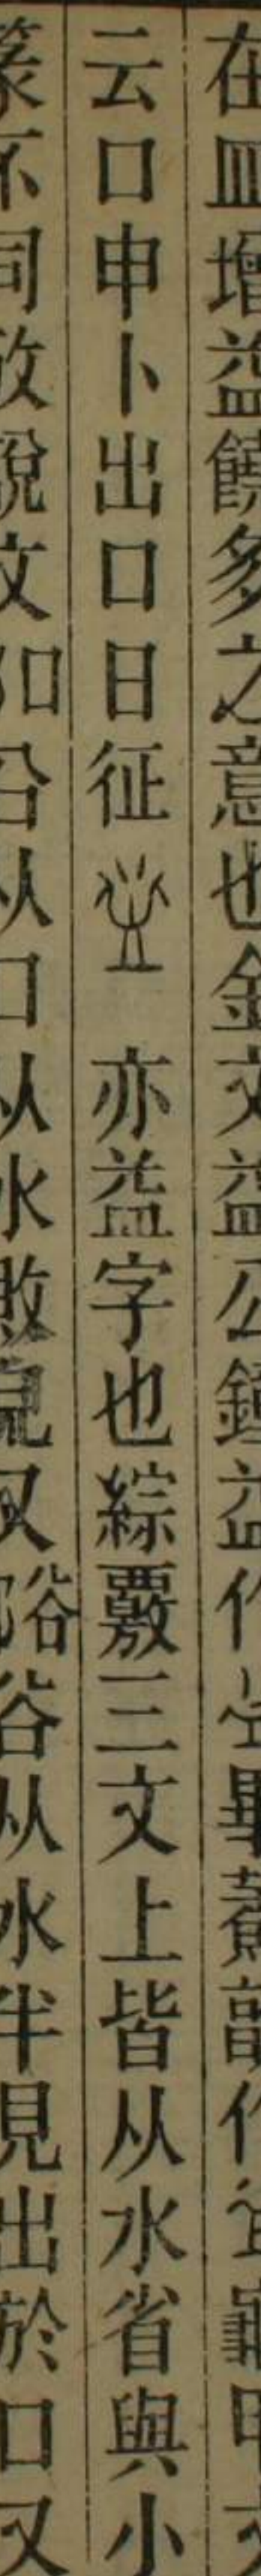 在皿增益饒多之意也金文益公鐘益作畢作龜甲文
云口申卜出口日征亦益字也綜覈三文上皆从水省與小
篆不同攷說文㕣从口从水敗皃又谷从水半見出於口又